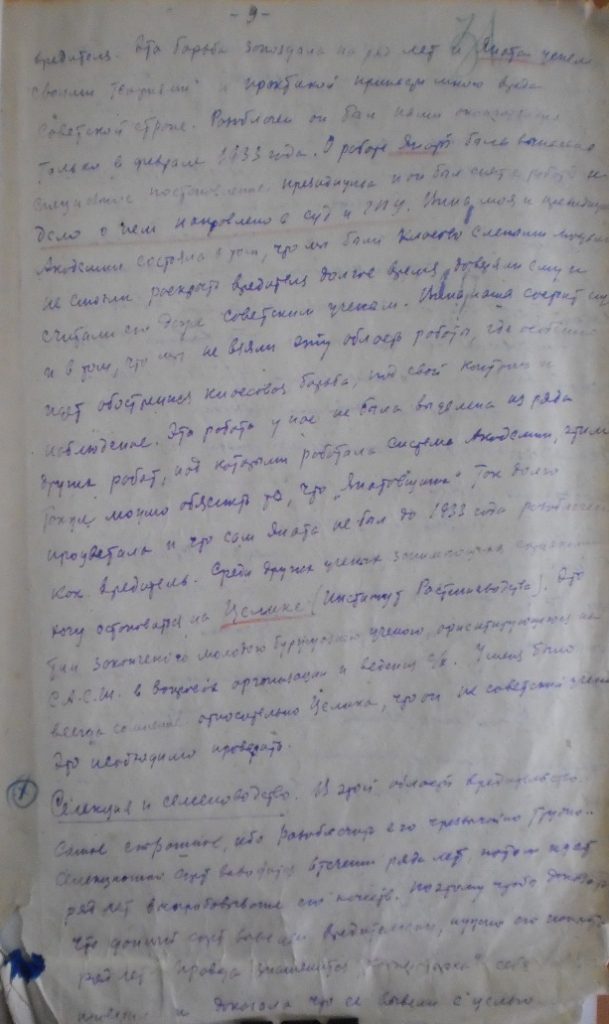 - 9 -
вредителя. Эта борьба запоздала на ряд лет и Яната успел
своими "теориями" и практикой принести много вреда
Советской стране. Разоблачен он был нами окончательно
только в феврале 1933 года. О работе Янаты была вынесена
специальное постановление президиума и он был снят с работы и
дело о нем направлено в суд и ГПУ. Вина моя и президиума
Академии состояла в том, что мы были классово слепыми людьми
не смогли раскрыть вредителя долгое время, доверяли ему и
считали его даже советским ученым. Вина наша состоит
и в том, что мы не взяли эту область работы, где особенно
идет обостренная классовая борьба, под свой контроль и
наблюдение. Эта работа у нас не была выделена из ряда
других работ, над которыми работала система Академии, этим
только можно объяснить то, что "Янатовщина" так долго
процветала и что сам Яната не был до 1933 года разоблачен
как вредитель. Среди других ученых занимающихся
хочу остановиться на Целике (Институт Растениеводства). Это
тип законченного молодого буржуазного ученого, ориентирующегося на
С.А.С.Ш. в вопросах организации и ведения с/х. У меня было
всегда сомнение относительно Целика, что он не советский ученый
Это необходимо проверить.
Селекция и семеноводство. В этой области вредительство
самое страшное, ибо разоблачить его чрезвычайно трудно.
Селекционный сорт выводится в течении ряда лет, потом идет
ряд лет в испробовывание его качеств. Поэтому чтобы доказать
что данный сорт выведен вредительски, нужно его
ряд лет. Правда знаменитая
и доказала что ее вывели с целью